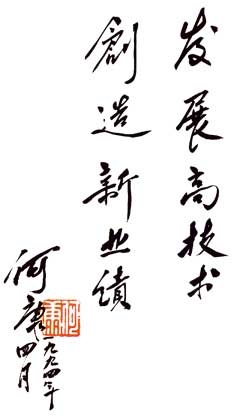 发展高技术
創造新业绩
何康
一九九四年
四月
何康